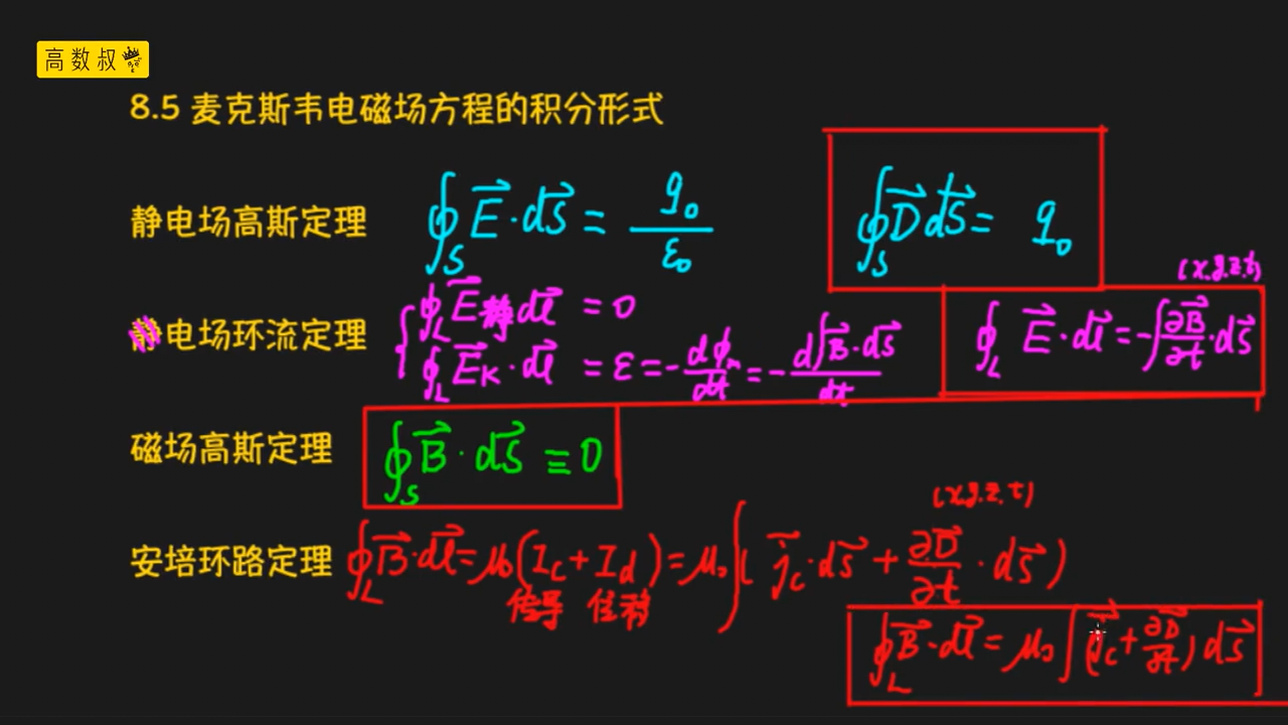 高数叔
8.5 麦克斯韦电磁场方程的积分形式
静电场高斯定理 ∮_S E⃗·dS⃗ = q₀/ε₀ ∮_S D⃗ dS⃗ = q₀
(x.y.z.t)
静电场环流定理 { ∮_L E⃗静 dl⃗ = 0
∮_L E⃗_K·dl⃗ = ε = -dϕ_m/dt = -d∫B⃗·dS⃗/dt ∮_L E⃗·dl⃗ = -∫∂B⃗/∂t·dS⃗
磁场高斯定理 ∮_S B⃗·dS⃗ ≡ 0
(x.y.z.t)
安培环路定理 ∮_L B⃗·dl⃗ = μ₀(I_c + I_d) = μ₀∫(j⃗_c·dS⃗ + ∂D⃗/∂t·dS⃗)
传导 位移
∮_L B⃗·dl⃗ = μ₀∫(j⃗_c + ∂D⃗/∂t) dS⃗